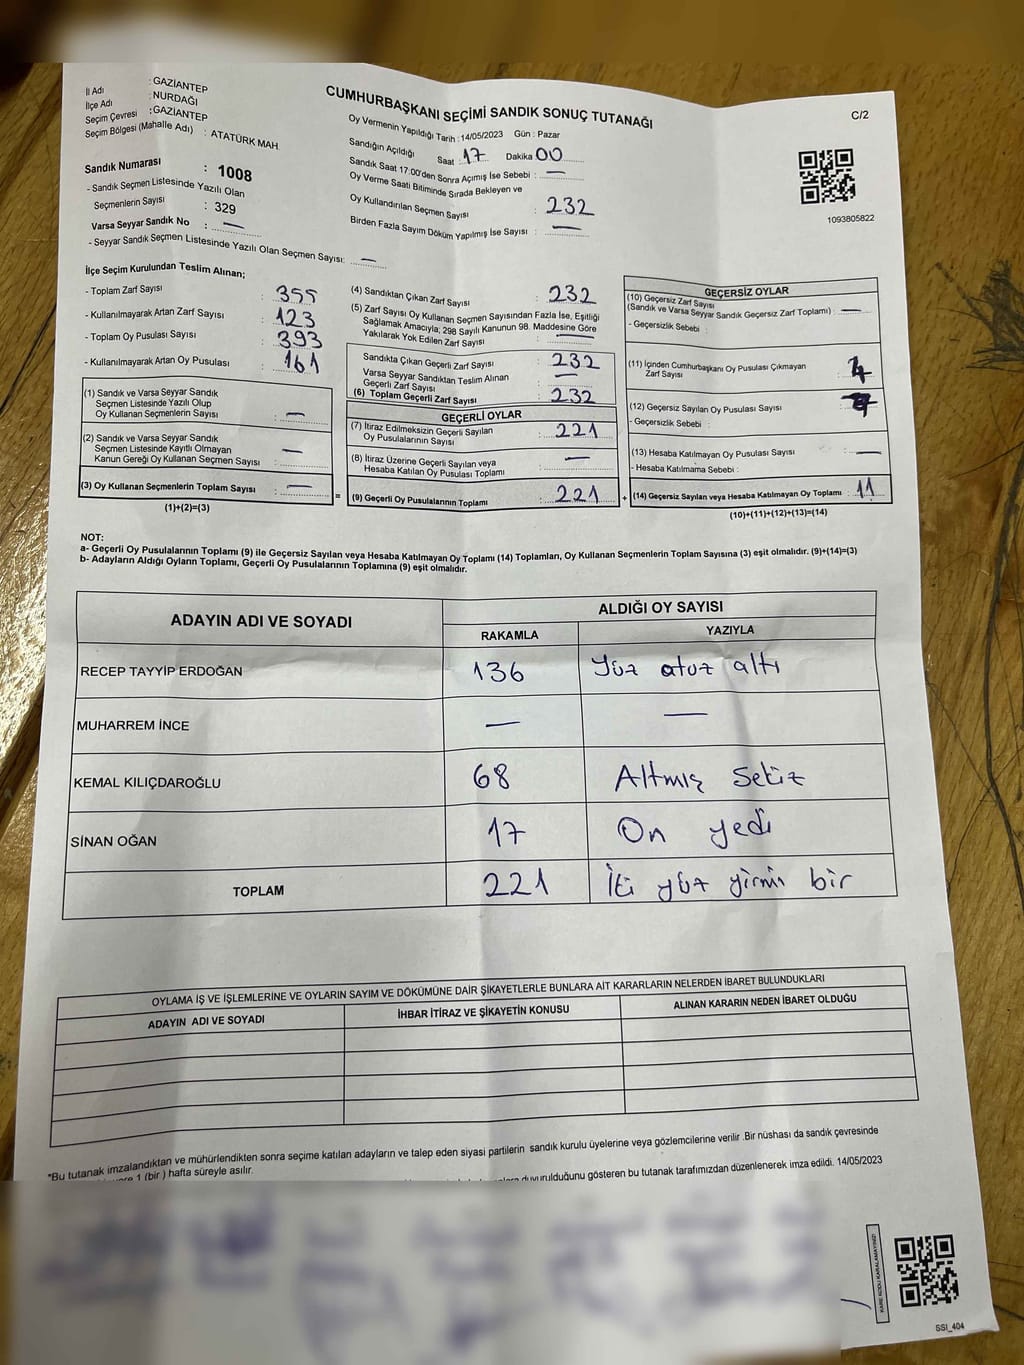 İl Adı : GAZİANTEP
İlçe Adı : NURDAĞI
Seçim Çevresi : GAZİANTEP
Seçim Bölgesi (Mahalle Adı) : ATATÜRK MAH.
Sandık Numarası : 1008
- Sandık Seçmen Listesinde Yazılı Olan
Seçmenlerin Sayısı : 329
Varsa Seyyar Sandık No : —
- Seyyar Sandık Seçmen Listesinde Yazılı Olan Seçmen Sayısı: —
CUMHURBAŞKANI SEÇİMİ SANDIK SONUÇ TUTANAĞI
Oy Vermenin Yapıldığı Tarih : 14/05/2023 Gün : Pazar
Sandığın Açıldığı Saat : 17 Dakika 00
Sandık Saat 17:00'den Sonra Açımış İse Sebebi : —
Oy Verme Saati Bitiminde Sırada Bekleyen ve
Oy Kullandırılan Seçmen Sayısı : 232
Birden Fazla Sayım Döküm Yapılmış İse Sayısı : —
C/2
1093805822
İlçe Seçim Kurulundan Teslim Alınan;
- Toplam Zarf Sayısı : 355
- Kullanılmayarak Artan Zarf Sayısı : 123
- Toplam Oy Pusulası Sayısı : 393
- Kullanılmayarak Artan Oy Pusulası : 161
(1) Sandık ve Varsa Seyyar Sandık
Seçmen Listesinde Yazılı Olup
Oy Kullanan Seçmenlerin Sayısı : —
(2) Sandık ve Varsa Seyyar Sandık
Seçmen Listesinde Kayıtlı Olmayan
Kanun Gereği Oy Kullanan Seçmen Sayısı : —
(3) Oy Kullanan Seçmenlerin Toplam Sayısı : —
(1)+(2)=(3)
=
(4) Sandıktan Çıkan Zarf Sayısı : 232
(5) Zarf Sayısı Oy Kullanan Seçmen Sayısından Fazla İse, Eşitliği
Sağlamak Amacıyla; 298 Sayılı Kanunun 98. Maddesine Göre
Yakılarak Yok Edilen Zarf Sayısı : —
Sandıkta Çıkan Geçerli Zarf Sayısı : 232
Varsa Seyyar Sandıktan Teslim Alınan
Geçerli Zarf Sayısı : —
(6) Toplam Geçerli Zarf Sayısı : 232
GEÇERLİ OYLAR
(7) İtiraz Edilmeksizin Geçerli Sayılan
Oy Pusulalarının Sayısı : 221
(8) İtiraz Üzerine Geçerli Sayılan veya
Hesaba Katılan Oy Pusulası Toplamı : —
(9) Geçerli Oy Pusulalarının Toplamı : 221
+
GEÇERSİZ OYLAR
(10) Geçersiz Zarf Sayısı
(Sandık ve Varsa Seyyar Sandık Geçersiz Zarf Toplamı) : —
- Geçersizlik Sebebi :
(11) İçinden Cumhurbaşkanı Oy Pusulası Çıkmayan
Zarf Sayısı : 4
(12) Geçersiz Sayılan Oy Pusulası Sayısı : 7
- Geçersizlik Sebebi :
(13) Hesaba Katılmayan Oy Pusulası Sayısı : —
- Hesaba Katılmama Sebebi :
(14) Geçersiz Sayılan veya Hesaba Katılmayan Oy Toplamı : 11
(10)+(11)+(12)+(13)=(14)
NOT:
a- Geçerli Oy Pusulalarının Toplamı (9) ile Geçersiz Sayılan veya Hesaba Katılmayan Oy Toplamı (14) Toplamları, Oy Kullanan Seçmenlerin Toplam Sayısına (3) eşit olmalıdır. (9)+(14)=(3)
b- Adayların Aldığı Oyların Toplamı, Geçerli Oy Pusulalarının Toplamına (9) eşit olmalıdır.
ADAYIN ADI VE SOYADI ALDIĞI OY SAYISI
RAKAMLA YAZIYLA
RECEP TAYYİP ERDOĞAN 136 Yüz otuz altı
MUHARREM İNCE — —
KEMAL KILIÇDAROĞLU 68 Altmış Sekiz
SİNAN OĞAN 17 On yedi
TOPLAM 221 İki yüz yirmi bir
OYLAMA İŞ VE İŞLEMLERİNE VE OYLARIN SAYIM VE DÖKÜMÜNE DAİR ŞİKAYETLERLE BUNLARA AİT KARARLARIN NELERDEN İBARET BULUNDUKLARI
ADAYIN ADI VE SOYADI İHBAR İTİRAZ VE ŞİKAYETİN KONUSU ALINAN KARARIN NEDEN İBARET OLDUĞU
*Bu tutanak imzalandıktan ve mühürlendikten sonra seçime katılan adayların ve talep eden siyasi partilerin sandık kurulu üyelerine veya gözlemcilerine verilir .Bir nüshası da sandık çevresinde
1 (bir ) hafta süreyle asılır.
duyurulduğunu gösteren bu tutanak tarafımızdan düzenlenerek imza edildi. 14/05/2023
KARE KODU KARALAMAYINIZ!
SSI_404